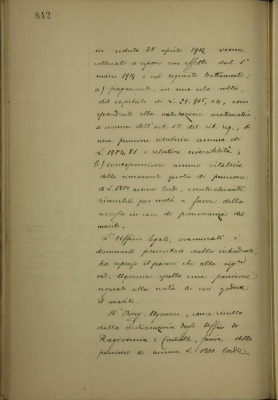 842
in seduta 28 aprile 1914 venne
collocato a riposo con effetto dal 1°
marzo 1914 e col seguente trattamento:
a) pagamento, in una sola volta,
del capitale di L. 29.915,04, corri
spondente alla valutazione matematica
a norma dell'art. 15 del cit. reg., di
una pensione vitalizia annua di
L. 1984.81 e relativa
b) corresponsione annua vitalizia
della rimanente quota di pensione
di L. 1800 annue lorde,
riversibile per metà a favore della
moglie in caso di del
L'Ufficio legale, esaminati i
documenti presentati dalla richiedente,
ha espresso il parere che alla sigra
ved. spetta una pensione
di cui godeva
il marito.
Il come risulta
dalla dichiarazione degli Uffici di
Ragioneria e fruiva della
pensione di annue L. 1800 lorde